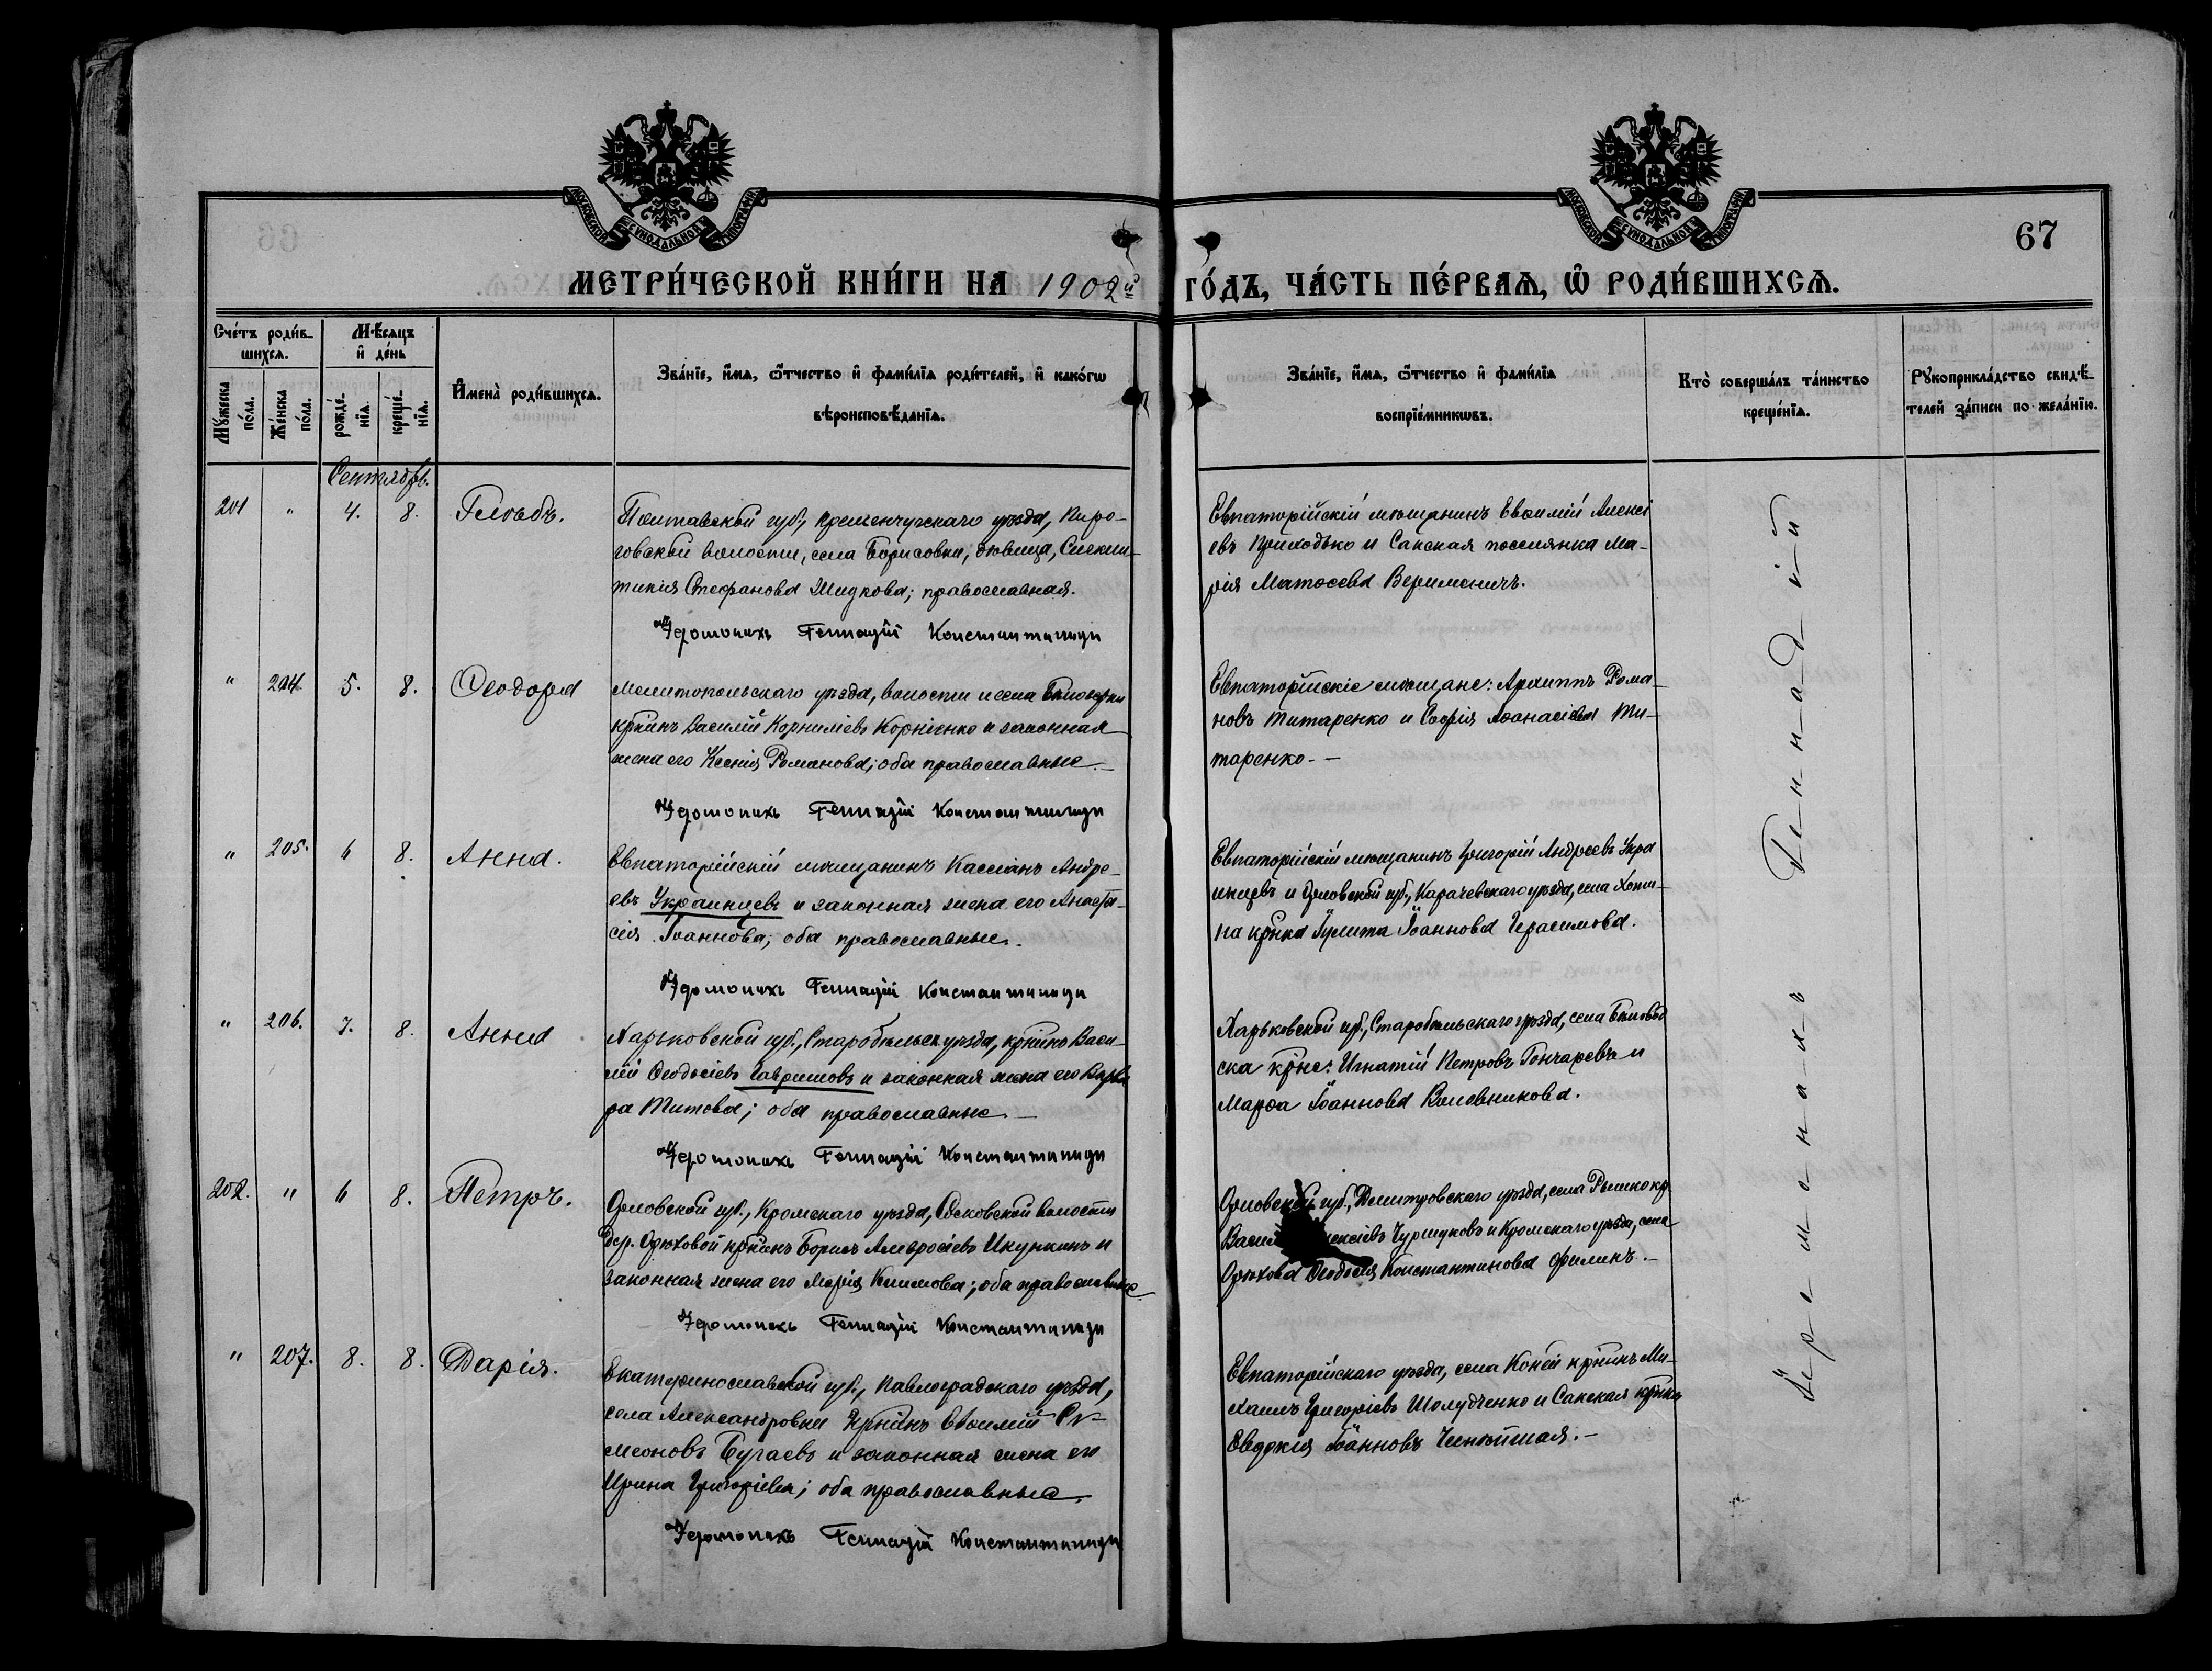 67
МЕТРИ́ЧЕСКОЙ КНИ́ГИ НА 1902й ГО́ДЪ, ЧА́СТЬ ПЕ́РВАѦ, Ѡ҆ РОДИ́ВШИХСѦ.
Сче́тъ роди́в-
шихсѧ.
Мѣ́сяцъ
и҆ де́нь
Мꙋ́жеска по́ла.
Же́нска по́ла.
рожде́-нїѧ.
креще́-нїѧ.
И҆мена̀ роди́вшихсѧ.
Зва́нїе, и҆́мѧ, ѻ҆́тчество и҆ фами́лїѧ роди́телей, и҆ како́гѡ
вѣроисповѣ́данїѧ.
Зва́нїе, и҆́мѧ, ѻ҆́тчество и҆ фами́лїѧ
воспрїе́мникѡвъ.
Кто̀ соверша́лъ та́инство
креще́нїѧ.
Рꙋкоприкла́дство свидѣ́-
телей за́писи по жела́нїю.
Сентябрь.
201 " 4. 8. Глѣбъ.
Полтавской губ., Кременчугскаго уѣзда, Пиро-
говской волости, села Борисовки, дѣвица,
Стефанова Жидкова; православная.
Іеромонахъ Геннадій Константиниди
Евпаторійскій мѣщанинъ Евѳимій Алексі
евъ Приходько и Сакская поселянка Ма-
рія Матѳеева Веримеичъ.
" 204. 5. 8. Ѳеодора
Мелитопольскаго уѣзда, волости и села Бѣлозерки
кр̃нинъ Василій Корниліевъ Корніенко и законная
жена его Ксенія Романова; оба православные.—
Іеромонахъ Геннадій Константиниди
Евпаторійскіе мѣщане: Архиппъ Рома-
новъ Титаренко и Софія Аѳанасіева Ти-
таренко.—
" 205. 6 8. Анна.
Евпаторійскій мѣщанинъ Кассіанъ Андре-
евъ Украинцевъ и законная жена его Анаста-
сія Іоаннова; оба православные.
Іеромонахъ Геннадій Константиниди
Евпаторійскій мѣщанинъ Григорій Андреевъ Укра
инцевъ и Орловской губ., Карачевскаго уѣзда, села
на кр̃нка Іулита Іоаннова Герасимова.
" 206. 7. 8. Анна
Харьковской губ., Старобѣльск уѣзда, кр̃нинъ Васи-
лій Ѳеодосіевъ Гавриловъ и законная жена его Варва
ра Титова; оба православные.—
Іеромонахъ Геннадій Константиниди
Харьковской губ., Старобѣльскаго уѣзда, села Бѣловод
ска кр̃не: Игнатій Петровъ Гончаревъ и
Марѳа Іоаннова Воловникова.
202. " 6 8. Петръ.
Орловской губ., Кромскаго уѣзда, волости
дер. Орѣховой кр̃нинъ Борисъ Амвросіевъ Икункинъ и
законная жена его Марія Климова; оба православные
Іеромонахъ Геннадій Константиниди
Орловской губ., Дмитровскаго уѣзда, села кр.
Чурпуковъ и Кромскаго уѣзда, села
Орѣхова Ѳеодосія Константинова Филинъ.—
" 207. 8. 8. Дарія.
Екатеринославской губ., Павлоградскаго уѣзда,
села Александровки кр̃нинъ Евѳимій Си-
меоновъ Бугаевъ и законная жена его
Ирина Григоріева; оба православные.
Іеромонахъ Геннадій Константиниди
Евпаторійскаго уѣзда, села кр̃нинъ Ми-
хаилъ Григоріевъ Шолудченко и Сакская кр̃нка
Евдокія Іоаннова
Іеромонахъ Геннадій